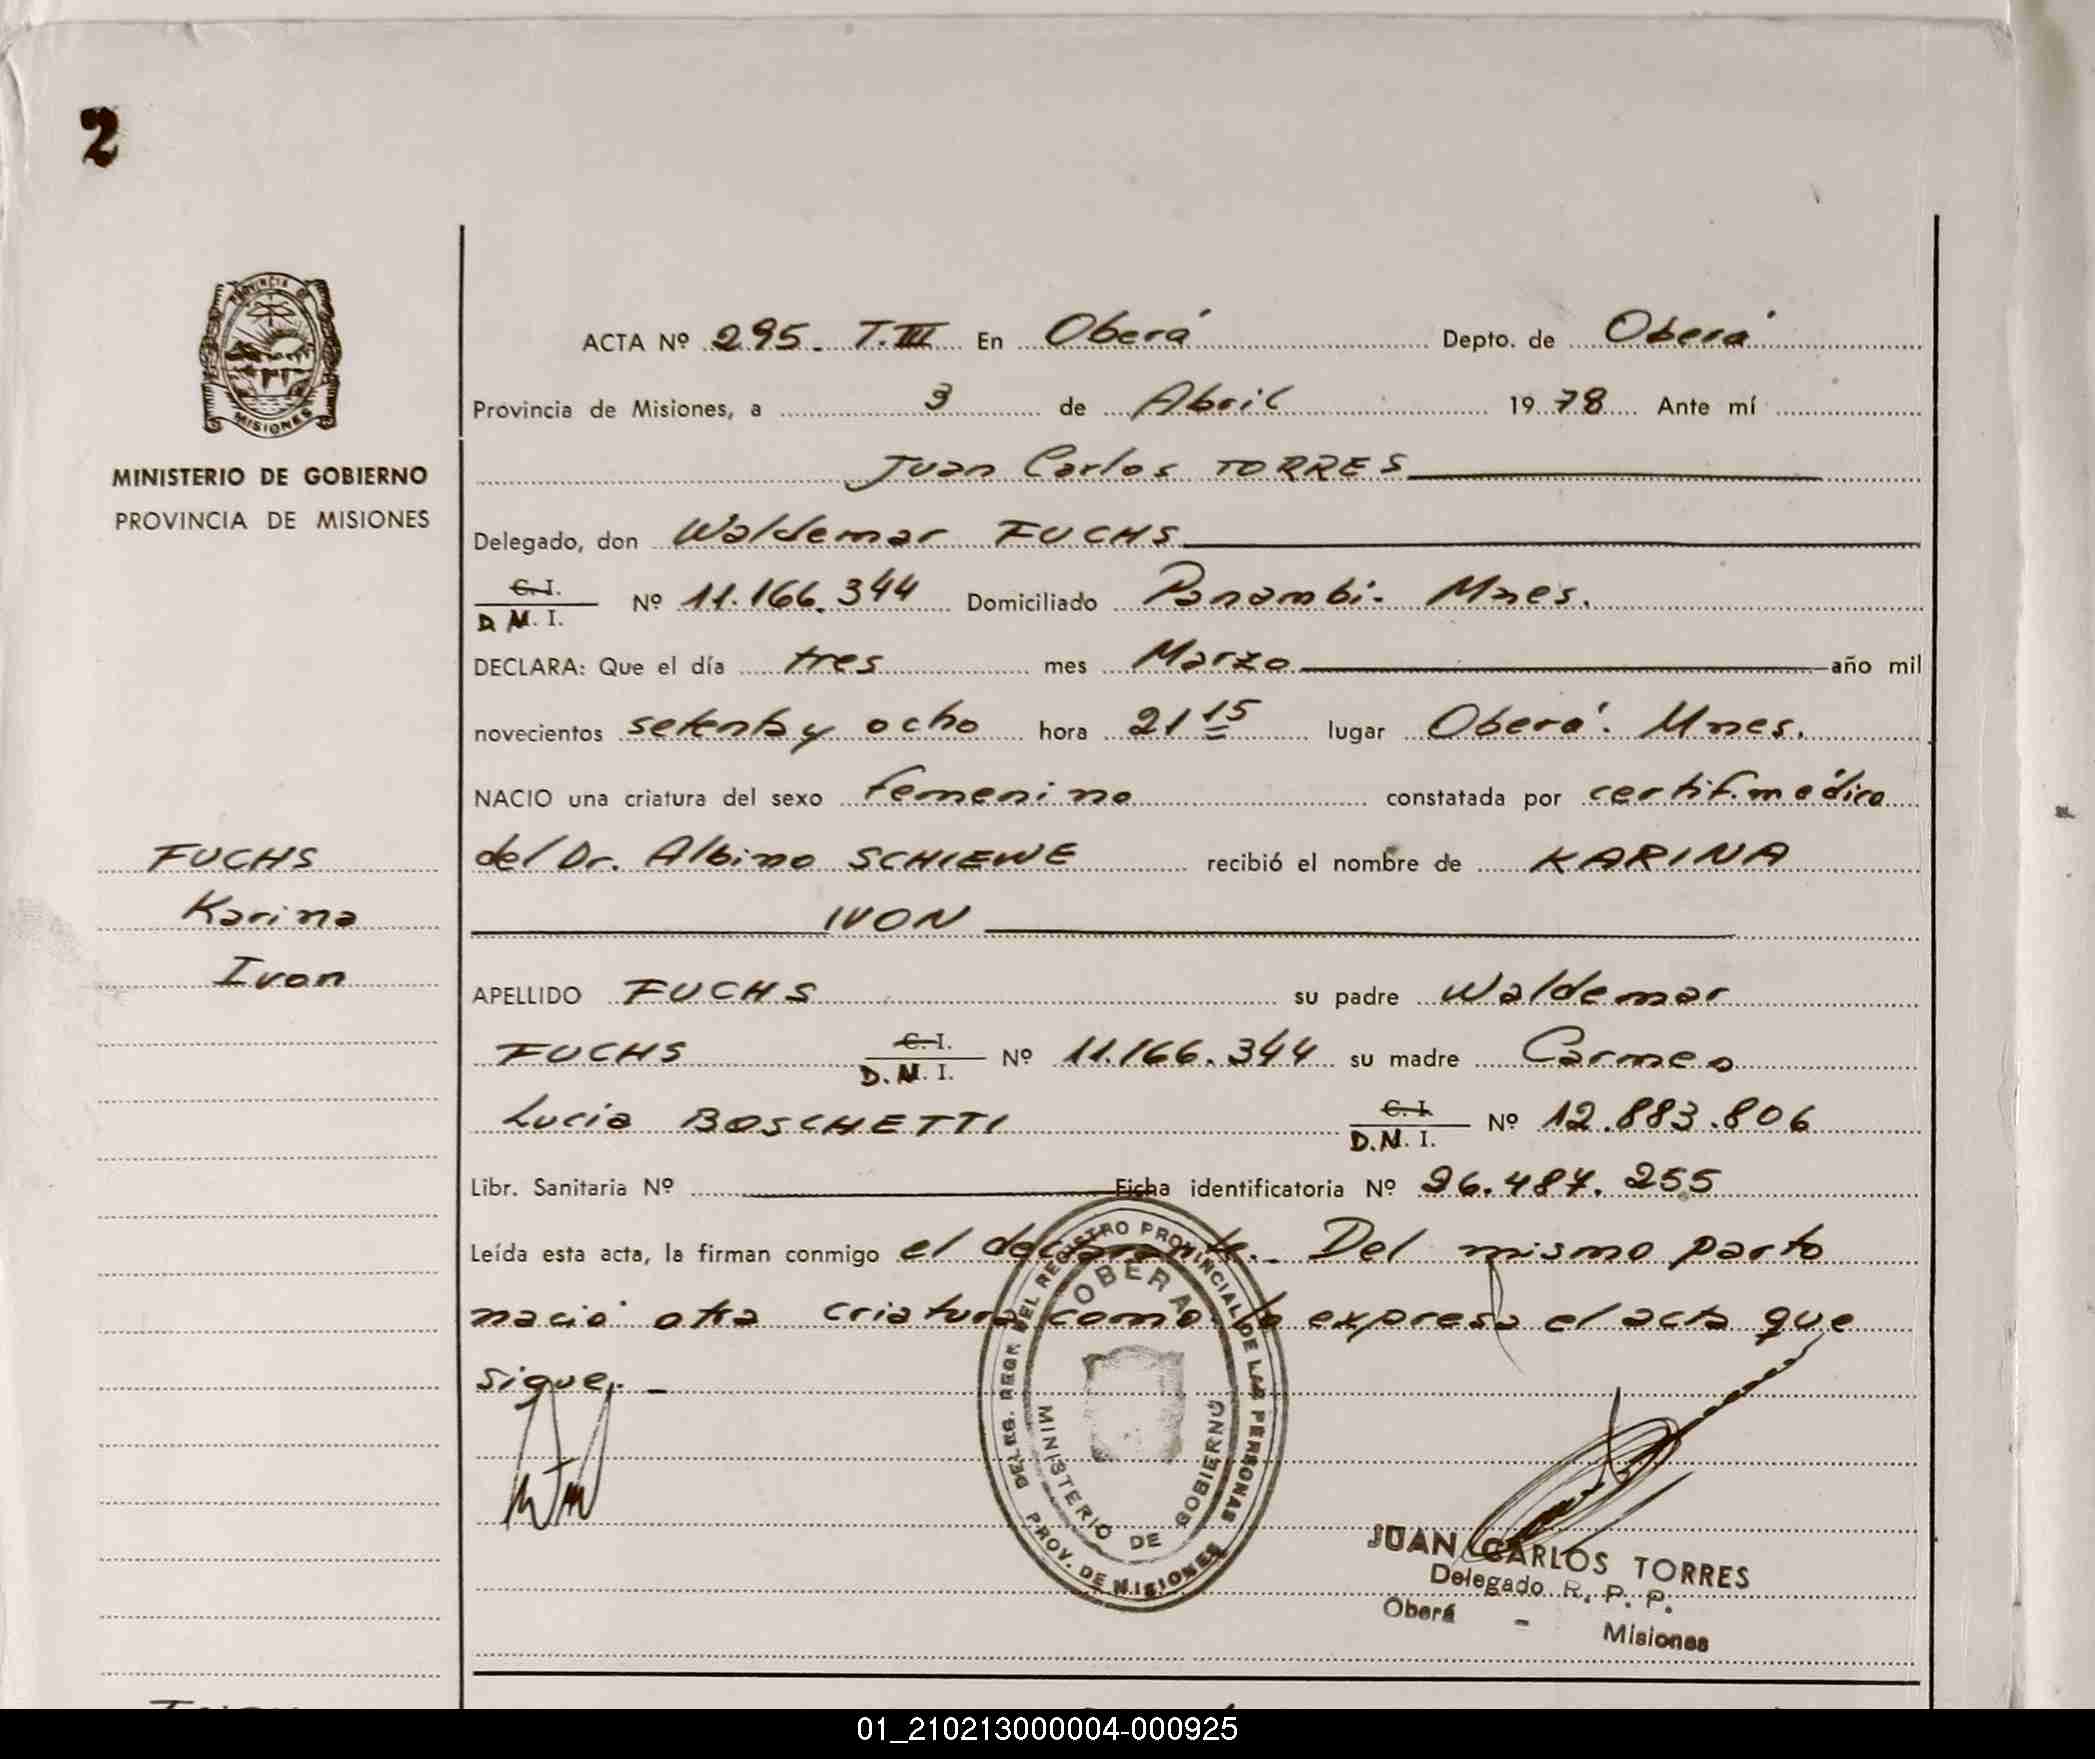 2
PROVINCIA DE
MISIONES
MINISTERIO DE GOBIERNO
PROVINCIA DE MISIONES
FUCHS
Karina
Ivon
ACTA Nº 295. T.III En Oberá Depto. de Oberá
Provincia de Misiones, a 3 de Abril 1978 Ante mí
Juan Carlos TORRES
Delegado, don Waldemar FUCHS
C.I.
D.N.I. Nº 11.166.344 Domiciliado Panambi- Mnes.
DECLARA: Que el día tres mes Marzo año mil
novecientos setenta y ocho hora 21 15 lugar Oberá. Mnes.
NACIO una criatura del sexo femenino constatada por certif. médico
del Dr. Albino SCHIEWE recibió el nombre de KARINA
IVON
APELLIDO FUCHS su padre Waldemar
FUCHS C.I. D.N.I. Nº 11.166.344 su madre Carmen
Lucia BOSCHETTI C.I. D.N.I. Nº 12.883.806
Libr. Sanitaria Nº Ficha identificatoria Nº 26.487.255
Leída esta acta, la firman conmigo el declarante. Del mismo parto
nació otra criatura como lo expresa el acta que
sigue. -
DELEG. REGR. DEL REGISTRO PROVINCIAL DE LAS PERSONAS
PROV. DE MISIONES
OBERA
MINISTERIO DE GOBIERNO
JUAN CARLOS TORRES
Delegado R. P. P.
Oberá - Misiones
01_210213000004-000925